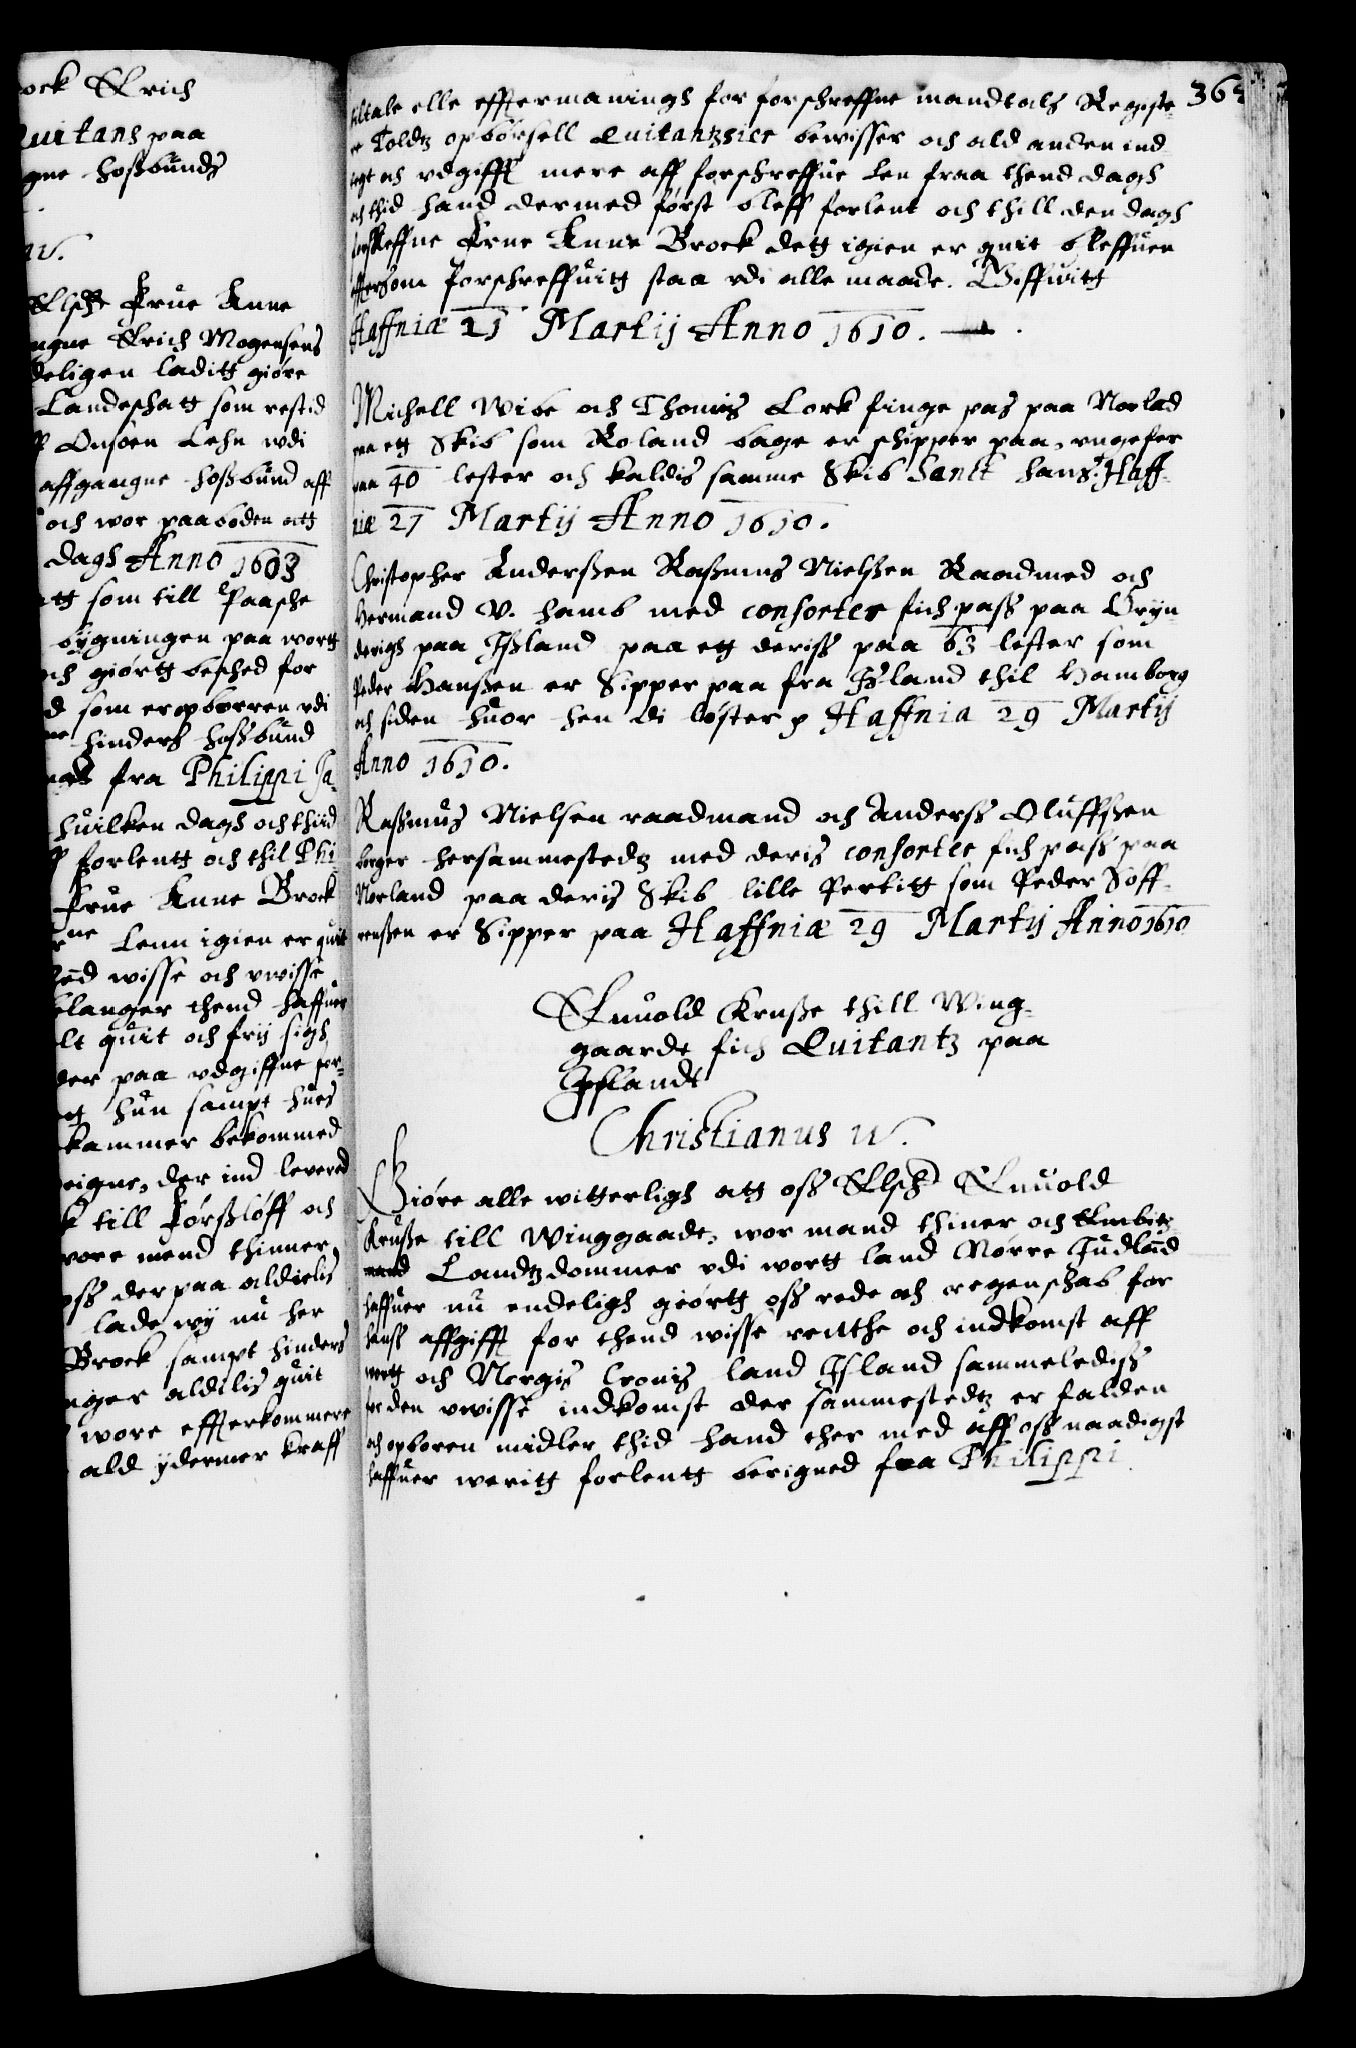 ock Erich
Quitans paa
gne hoßbunds
IV.
Elsche Frue Anne
ngne Erich Mogensens
deligen laditt giøre
Landeschatt som restid
ff Onsøen Lehn wdi
affgangne hoßbund aff
och wor paaboden att
dags Anno 1603
tt som till Paasche
bygningen paa wortt
och giortt besched for
d som er opborren vdi
hinders hoßbund
fra Philippi Ja-
huilken dags och thiid
forlentt och thil Phi-
Frue Anne Brock
ne Lenn igien er quit
wisse och vwisse
elanger thend haffuer
lt quit och frij sigh
der paa vdgiffne for-
hun sampt hues
kammer bekommed
eigne, der ind levered
k till Førsløff och
wore mend thinner
oss derpaa aldielis
lade wy nu her
Brock sampt hinders
nger aldelis quit
wore effterkommere
ald ydermer kraff
tiltale elle efftermanings for forschreffne mandtals Registe-
re Toldtz opbørsell Quitantzsier bewisser och ald anden ind
tegt och vdgifft mere aff forschreffne Len fraa thend dagh
och thid hand dermed først bleff forlent och thill den dagh
forschreffne Frue Anne Brock dett igien er quit bleffuen
efftersom forschreffuitt staa vdi alle maade. Giffuitt
Haffniæ 21 Martij Anno 1610.
Michell Wibe och Thomis Lork finge pas paa Norlad
paa ett Skib som Roland bage er schipper paa, vngefer
paa 40 lester och kaldis samme Skib Sanct hans. Haff-
niæ 27 Martij Anno 1610.
Christopher Anderßen Raßmus Nielßen Raadmed och
Hermand V. hamb med consorter fich pass paa Gryn-
derigh paa Ißland paa ett deriss paa 63 lester som
Peder Hanßen er Sipper paa fra Ißland thil Hamborg
och siden huor hen di løster p Haffnia 29 Martij
Anno 1610.
Rasßmus Nielsen raadmand och Anderss Oluffßen
borger hersammestedtz med deris consorter fich pass paa
Norland paa deris Skib lille Fortitt som Peder Søff-
renßen er Sipper paa Haffniæ 29 Martij Anno 1610
Enuold Kruße thill Wing-
gaarde fich Quitantz paa
Ißlandt
Christianus IV.
Giøre alle witterligh att oss Elsch Enuold
Kruße till Winggaade, wor mand thiner och Embitz
mand Landtzdommer vdi wortt land Nørre Judlad
haffuer nu endeligh giørtt oss rede och regenschab for
hanss affgifft for thend wisse renthe och indkomst aff
wortt och Norgis Cronis land Island sammelediss
for den vwisse indkomst der sammestedtz er falden
och opboren midler thid hand ther med aff oss naadigst
haffuer weritt forlentt berigned fra Philippi